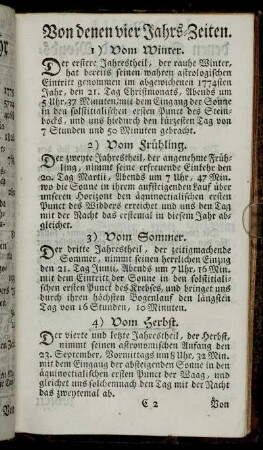 Von denen vier Jahrs-Zeiten.
1) Vom Winter.
Der erstere Jahrestheil, der rauhe Winter,
hat bereits seinen wahren astrologischen
Eintritt genommen im abgewichenen 1774sten
Jahr, den 21. Tag Christmonats, Abends um
5 Uhr, 37 Minuten, mit dem Eingang der Sonne
in den solstitialischen ersten Punct des Stein-
bocks, und uns hiedurch den kürzesten Tag von
7 Stunden und 50 Minuten gebracht.
2) Vom Frühling.
Der zweyte Jahrestheil, der angenehme Früh-
ling, nimmt seine erfreuende Einkehr den
20. Tag Martii, Abends um 7 Uhr, 47 Min.
wo die Sonne in ihrem aufsteigenden Lauf über
unseren Horizont den äquinoctialischen ersten
Punct des Widders erreichet und uns den Tag
mit der Nacht das erstemal in diesem Jahr ab-
gleichet.
3) Vom Sommer.
Der dritte Jahrestheil, der zeitigmachende
Sommer, nimmt seinen herrlichen Einzug
den 21. Tag Junii, Abends um 7 Uhr, 16 Min.
mit dem Eintritt der Sonne in den solstitiali-
schen ersten Punct des Krebses, und bringet uns
durch ihren höchsten Bogenlauf den längsten
Tag von 16 Stunden, 10 Minuten.
4) Vom Herbst.
Der vierte und letzte Jahrestheil, der Herbst,
nimmt seinen astronomischen Anfang den
23. September, Vormittags um 8 Uhr, 32 Min.
mit dem Eingang der absteigenden Sonne in den
äquinoctialischen ersten Punct der Waag, und
gleichet uns solchemnach den Tag mit der Nacht
das zweytemal ab.
C 2 Von